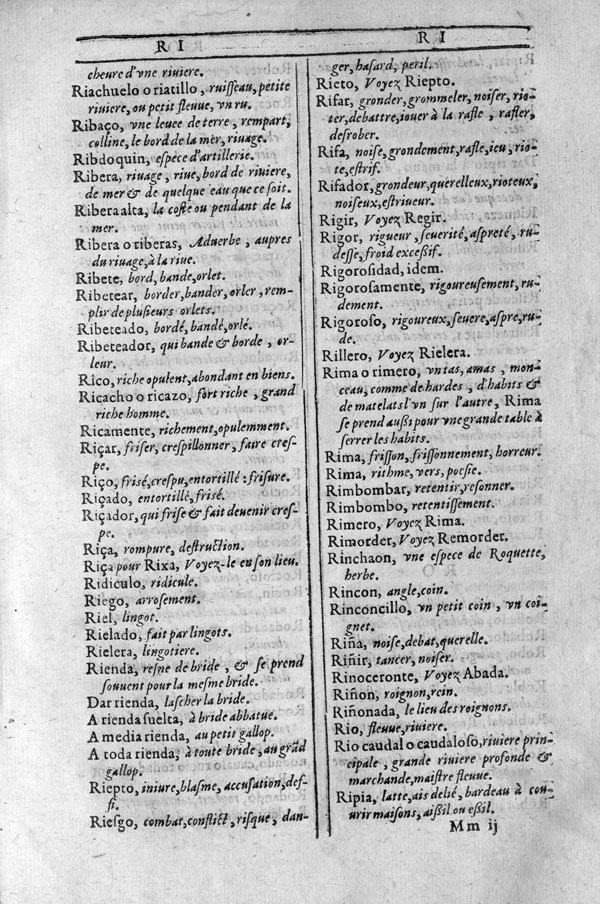 R I
cheure d'vne riuiere.
Riachuelo o riatillo, ruisseau, petite
riuiere, ou petit fleuue, vn ru.
Ribaço, vne leuee de terre, rempart,
colline, le bord de la mer, riuage.
Ribdoquin, espece d'artillerie.
Ribera, riuage, riue, bord de riuiere,
de mer & de quelque eau que ce soit.
Ribera alta, la coste ou pendant de la
mer.
Ribera o riberas, Aduerbe, aupres
du riuage, à la riue.
Ribete, bord, bande, orlet.
Ribetear, border, bander, orler, rem-
plir de plusieurs orlets.
Ribeteado, bordé, bandé, orlé.
Ribeteador, qui bande & borde, or-
leur.
Rico, riche opulent, abondant en biens.
Ricacho o ricazo, fort riche, grand
riche homme.
Ricamente, richement, opulemment.
Riçar, friser, crespillonner, faire cres-
pe.
Riço, frisé, crespu, entortillé: frisure.
Riçado, entortillé, frisé.
Riçador, qui frise & fait deuenir cres-
pe.
Riça, rompure, destruction.
Riça pour Rixa, Voyez-le en son lieu.
Ridiculo, ridicule.
Riego, arrosement.
Riel, lingot.
Rielado, fait par lingots.
Rielera, lingotiere.
Rienda, resne de bride, & se prend
souuent pour la mesme bride.
Dar rienda, lascher la bride.
A rienda suelta, à bride abbatue.
A media rienda, au petit gallop.
A toda rienda, à toute bride, au grãd
gallop.
Riepto, iniure, blasme, accusation, def-
fi.
Riesgo, combat, conflict, risque, dan-
R I
ger, hasard, peril.
Rieto, Voyez Riepto.
Rifar, gronder, grommeler, noiser, rio-
ter, debattre, iouer à la rafle, rafler,
desrober.
Rifa, noise, grondement, rafle, ieu, rio-
te, estrif.
Rifador, grondeur, querelleux, rioteux,
noiseux, estriueur.
Rigir, Voyez Regir.
Rigor, rigueur, seuerité, aspreté, ru-
desse, froid excessif.
Rigorosidad, idem.
Rigorosamente, rigoureusement, ru-
dement.
Rigoroso, rigoureux, seuere, aspre, ru-
de.
Rillero, Voyez Rielera.
Rima o rimero, vn tas, amas, mon-
ceau, comme de hardes, d'habits &
de matelats l'vn sur l'autre, Rima
se prend aussi pour vne grande table à
serrer les habits.
Rima, frisson, frissonnement, horreur.
Rima, rithme, vers, poesie.
Rimbombar, retentir, resonner.
Rimbombo, retentissement.
Rimero, Voyez Rima.
Rimorder, Voyez Remorder.
Rinchaon, vne espece de Roquette,
herbe.
Rincon, angle, coin.
Rinconcillo, vn petit coin, vn coi-
gnet.
Riña, noise, debat, querelle.
Riñir, tancer, noiser.
Rinoceronte, Voyez Abada.
Riñon, roignon, rein.
Riñonada, le lieu des roignons.
Rio, fleuue, riuiere.
Rio caudal o caudaloso, riuiere prin-
cipale, grande riuiere profonde &
marchande, maistre fleuue.
Ripia, latte, ais delié, bardeau à cou-
urir maisons, aissil ou essil.
Mm ij